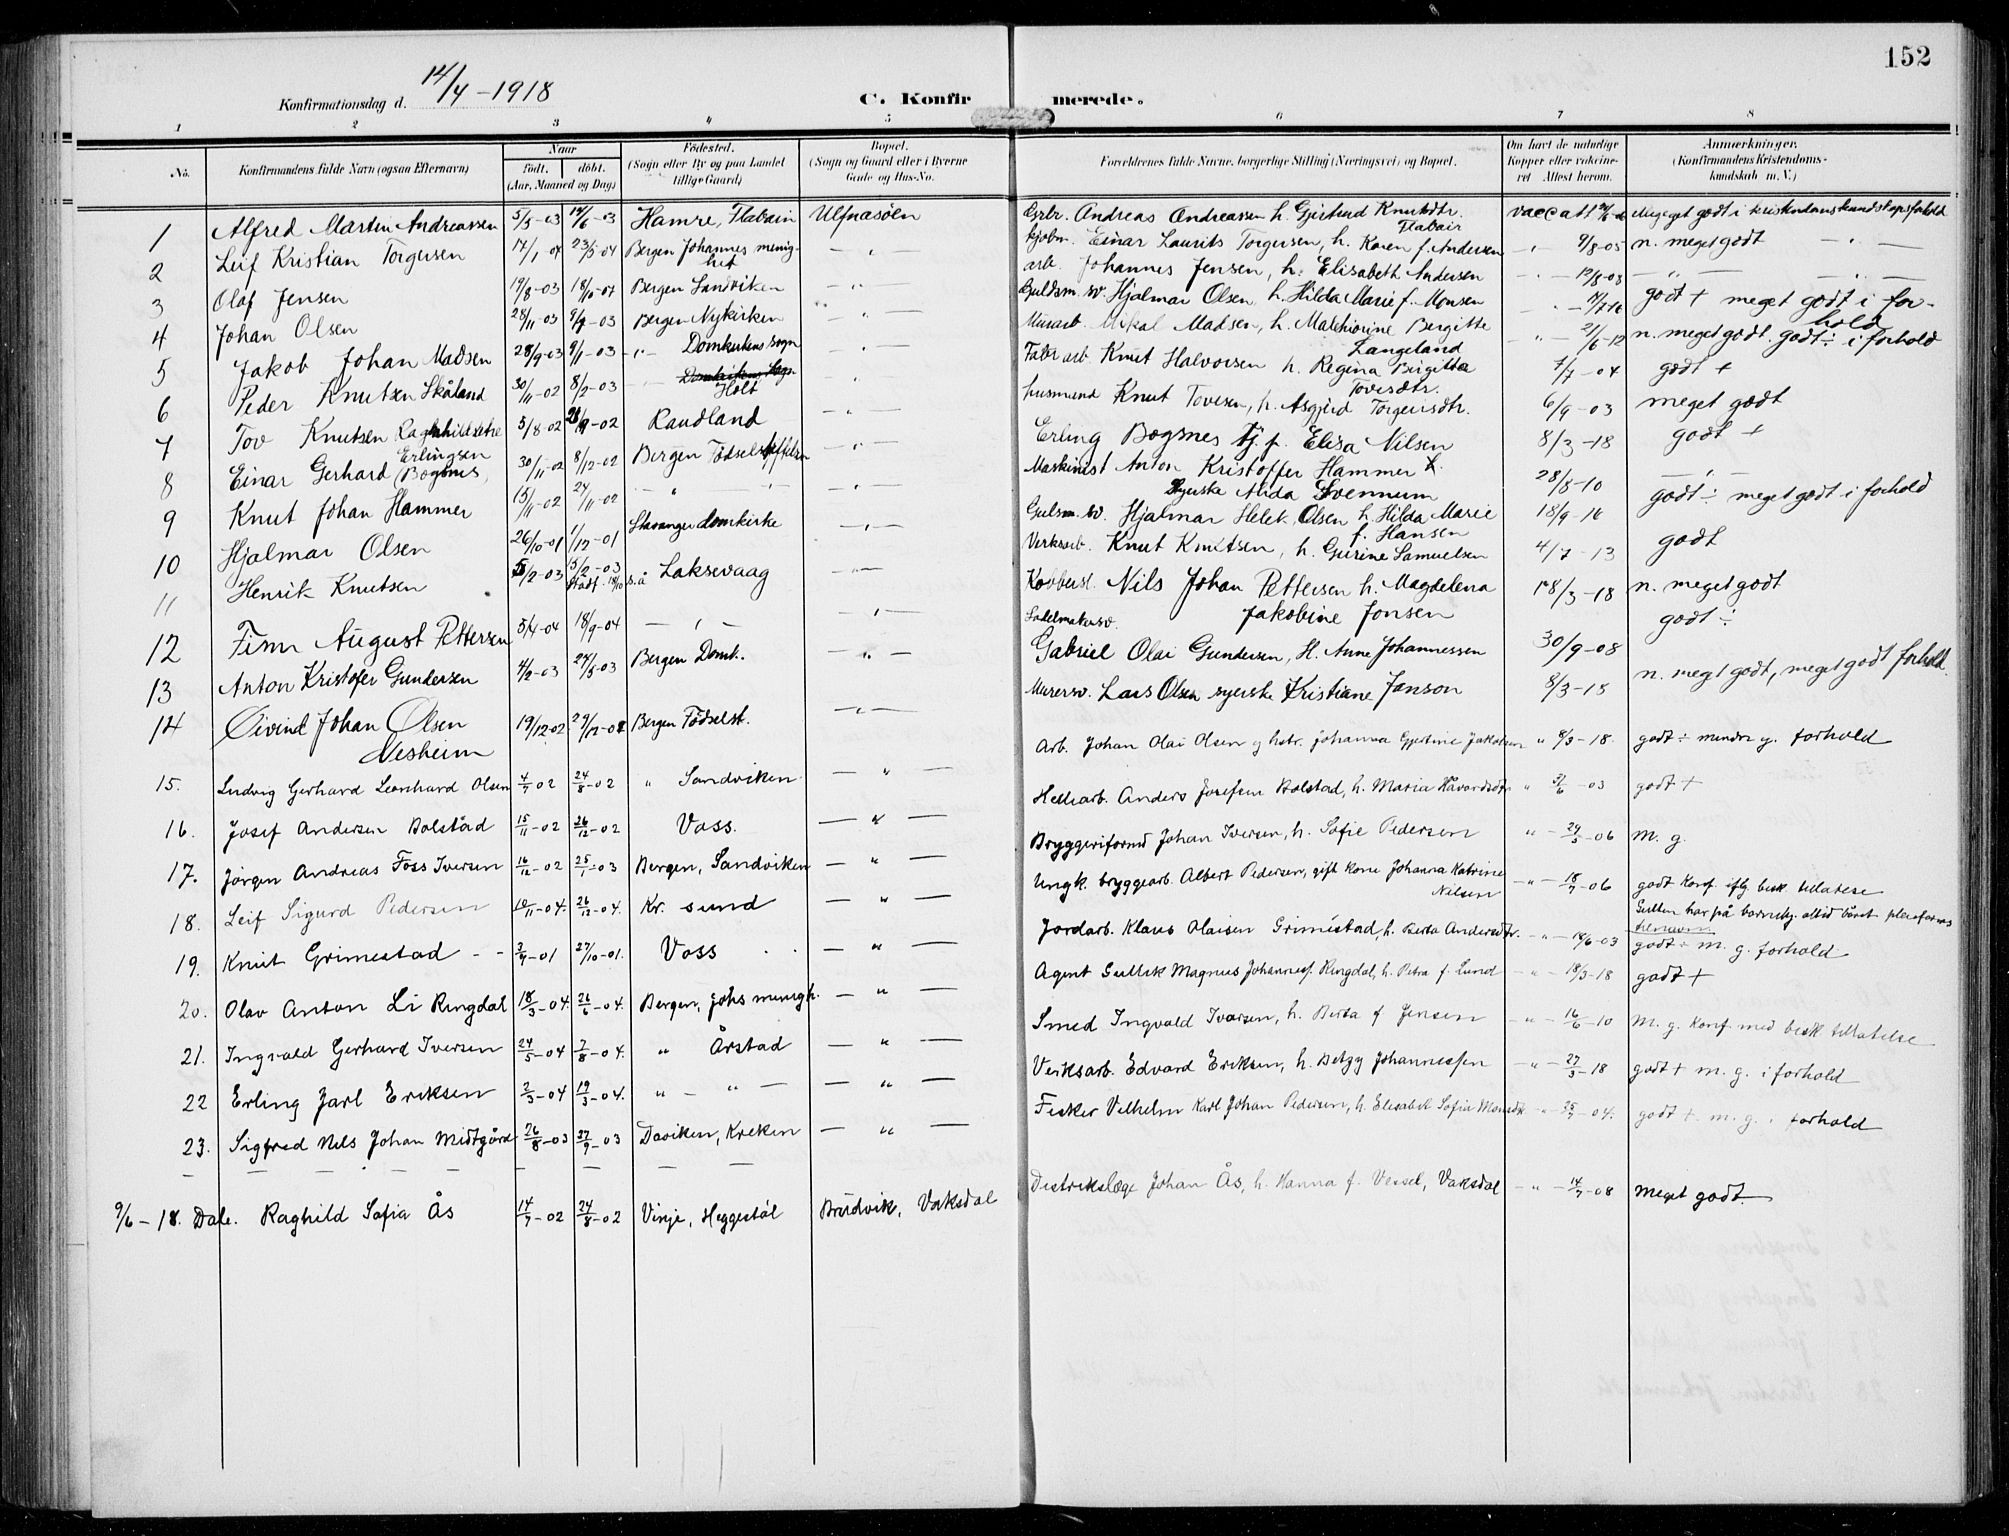 152
Konfirmationsdag d. 14/4 - 1918
C. Konfirmerede.
1 2 3 4 5 6 7 8
No.
Konfirmandens fulde Navn (ogsaa Efternavn)
Naar
født. døbt.
(Aar, Maaned og Dag)
Fødested.
(Sogn eller By og paa Landet
tillige Gaard)
Bopæl.
(Sogn og Gaard eller i Byerne
Gade og Hus-No.
Forældrenes fulde Navne, borgerlige Stilling (Næringsvei) og Bopæl.
Om havt de naturlige
Kopper eller vaccine-
ret Attest herom.
Anmærkninger.
(Konfirmandens Kristendoms-
kundskab m. V.)
1 Alfred Martin Andreassen 5/5-03 14/6-03 Hamre, Flatøin Ulfnasöen Grbr. Andreas Andreassen h. Gjertrud Knutsdtr. vacc att
2 Leif Kristian Torgersen 17/1 04 23/5-04 Bergen Johannes menighet Einar Laurits Torgersen, h. Karen f. Andersen 9/8-05 n. meget godt
3 Olaf Jensen 19/8-03 Bergen Sandviken arb. Johannes Jensen, h. Elisabeth Andersen 12/8-03
4 Johan Olsen 28/11-03 Bergen Nykirken Guldsm. sv. Hjalmar Olsen h. Hilda Marie f. Monsen godt + meget godt i forhold
5 Jakob Johan Madsen 28/9-03 9/1-03 Domkirkens sogn Murarb. Mikal Madsen, h. Malchiorine Bergitte Langeland 21/6-12 n. meget godt. godt ÷ i forhold
6 Peder Knutsen Skåland 30/11-02 8/2-03 Holt Fabr arb Knut Halvorsen h. Regina Birgitta Tovesdtr. 7/7-04 godt +
7 Tov Knutsen Ragnhildsetre 5/8-02 -02 Raudland husmand Knut Tovesen, h. Asgjerd Torgersdtr. 6/9-03 meget godt
8 Einar Gerhard Erlingsen (Bognes) 30/11-02 8/12-02 Bergen Fødselsstiftelsen Erling Bognes Tj. p. Elisa Nilsen 8/3-18 godt +
9 Knut Johan Hammer 15/11-02 24/11-02 Maskinist Anton Kristoffer Hammer Syerske Alida Svennum 28/8-10
10 Hjalmar Olsen 26/10-01 1/12-01 Stavanger domkirke Gulsm. sv. Hjalmar Olsen h. Hilda Marie f. Hansen 18/9-16 godt ÷ meget godt i forhold
11 Henrik Knutsen 5/2-03 15/2-03 s.å Laksevaag Verksarb. Knut Knutsen, h. Gurine Samuelsen 4/7-13 godt
12 Finn August Pettersen 5/4-04 18/9-04 Kobbersl. Nils Johan Pettersen h. Magdelena Jakobine Jonsen 18/3-18 n. meget godt
13 Anton Kristofer Gundersen 4/2-03 24/5-03 Bergen Domk. Sadelmakersv. Gabriel Olai Gundersen, H. Anne Johannessen 30/9-08 godt ÷
14 Öivind Johan Olsen Nesheim 19/12-02 29/12-02 Bergen Fødselst. Murersv. Lars Olsen syerske Kristiane Janson 8/3-18 n. meget godt, meget godt forhold.
15. Ludvig Gerhard Leonhard Olsen 4/7 02 24/8-02 " Sandviken Arb. Johan Olai Olsen og hstr. Johanna Gjertine Jakobsen " 8/3-18. godt ÷ mindre g. forhold
16. Josef Andersen Bolstad 15/11-02 26/12-02 Voss. Helliarb. Anders Josefsen Bolstad, h. Maria Håvardsdtr " 3/6-03 godt +
17. Jörgen Andreas Foss Iversen 16/12-02 25/1-03 Bergen, Sandviken Bryggeriformd Johan Iversen, h. Sofie Pedersen " 29/5-06 m. g.
18. Leif Sigurd Pedersen 10/11-04. 26/12-04. Kr. sund Ungk. bryggearb. Albert Pedersen, gift kone Johanna Katrine Nilsen 18/7-06 godt Konf. iflg. bisk. tillatelse
19. Knut Grimestad 3/9-01 27/10-01. Voss Jordarb. Klaus Olaisen Grimestad, h. Berta Andersdtr. 19/6-03 godt ÷ m. g. forhold
20. Olav Anton Li Ringdal 18/3-04. 26/6-04. Bergen, Johs menigh. Agent Gullik Magnus Johannesf. Ringdal, h. Petra f. Lund 18/3-18 godt +
21. Ingvald Gerhard Iversen 24/5-04 7/8-04. " Årstad Smed Ingvald Iversen, h. Berta f Jensen 16/6-10 m. g. Konf. med bisk tillatelse
22 Erling Jarl Eriksen 2/3-04 19/3-04. " Verksarb. Edvard Eriksen, h. Betzy Johannessen 27/3-18 godt + m. g. i forhold
23. Sigfred Nils Johan Midtgård 26/8-03 27/9-03 Daviken, Kreken Fisker Vilhelm Karl Johan Pedersen, h. Elisabet Sofia Monsdtr. 25/7-04. godt + m. g. i forhold
9/6-18. Dale. Raghild Sofia Ås 14/7-02 24/8-02 Vinje, Heggestöl Brudvik, Vaksdal Distriktslæge Johan Ås, h. Hanna f. Vessel, Vaksdal 14/7-08 meget godt.